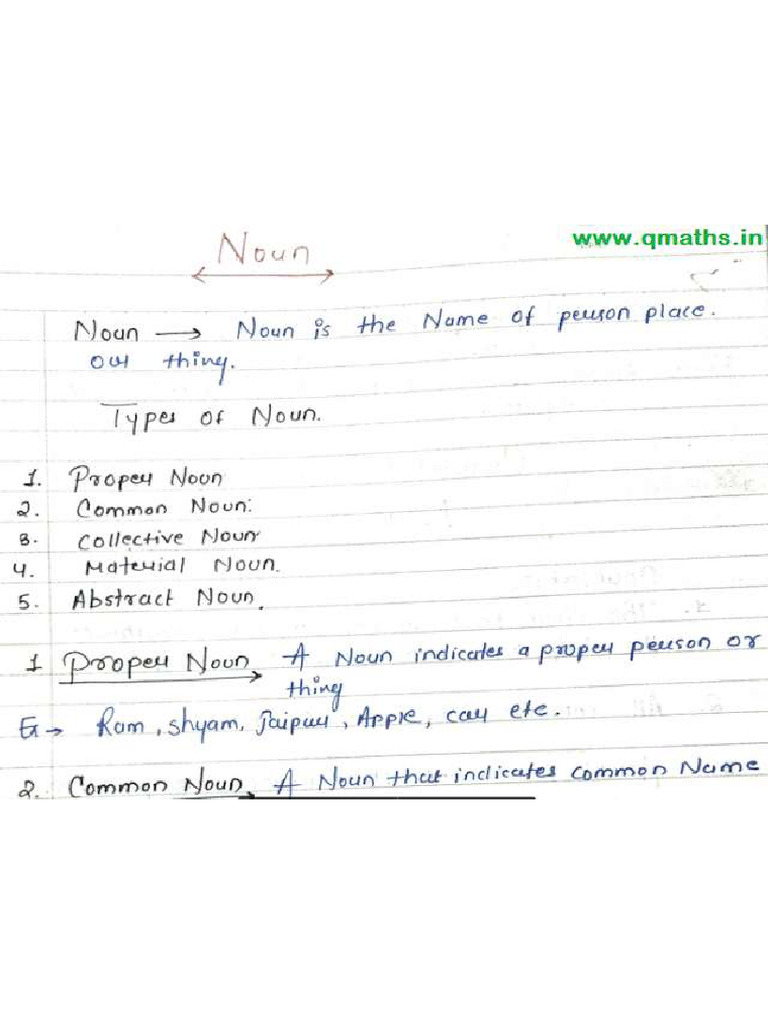 Noun
www.qmaths.in
Noun → Noun is the Name of person place.
or thing.
Types of Noun.
1. Proper Noun
2. Common Noun.
3. Collective Noun
4. Material Noun.
5. Abstract Noun.
1 Proper Noun A Noun indicates a proper person or
thing
Ex → Ram, Shyam, Jaipur, Apple, car etc.
2. Common Noun, A Noun that indicates common Name